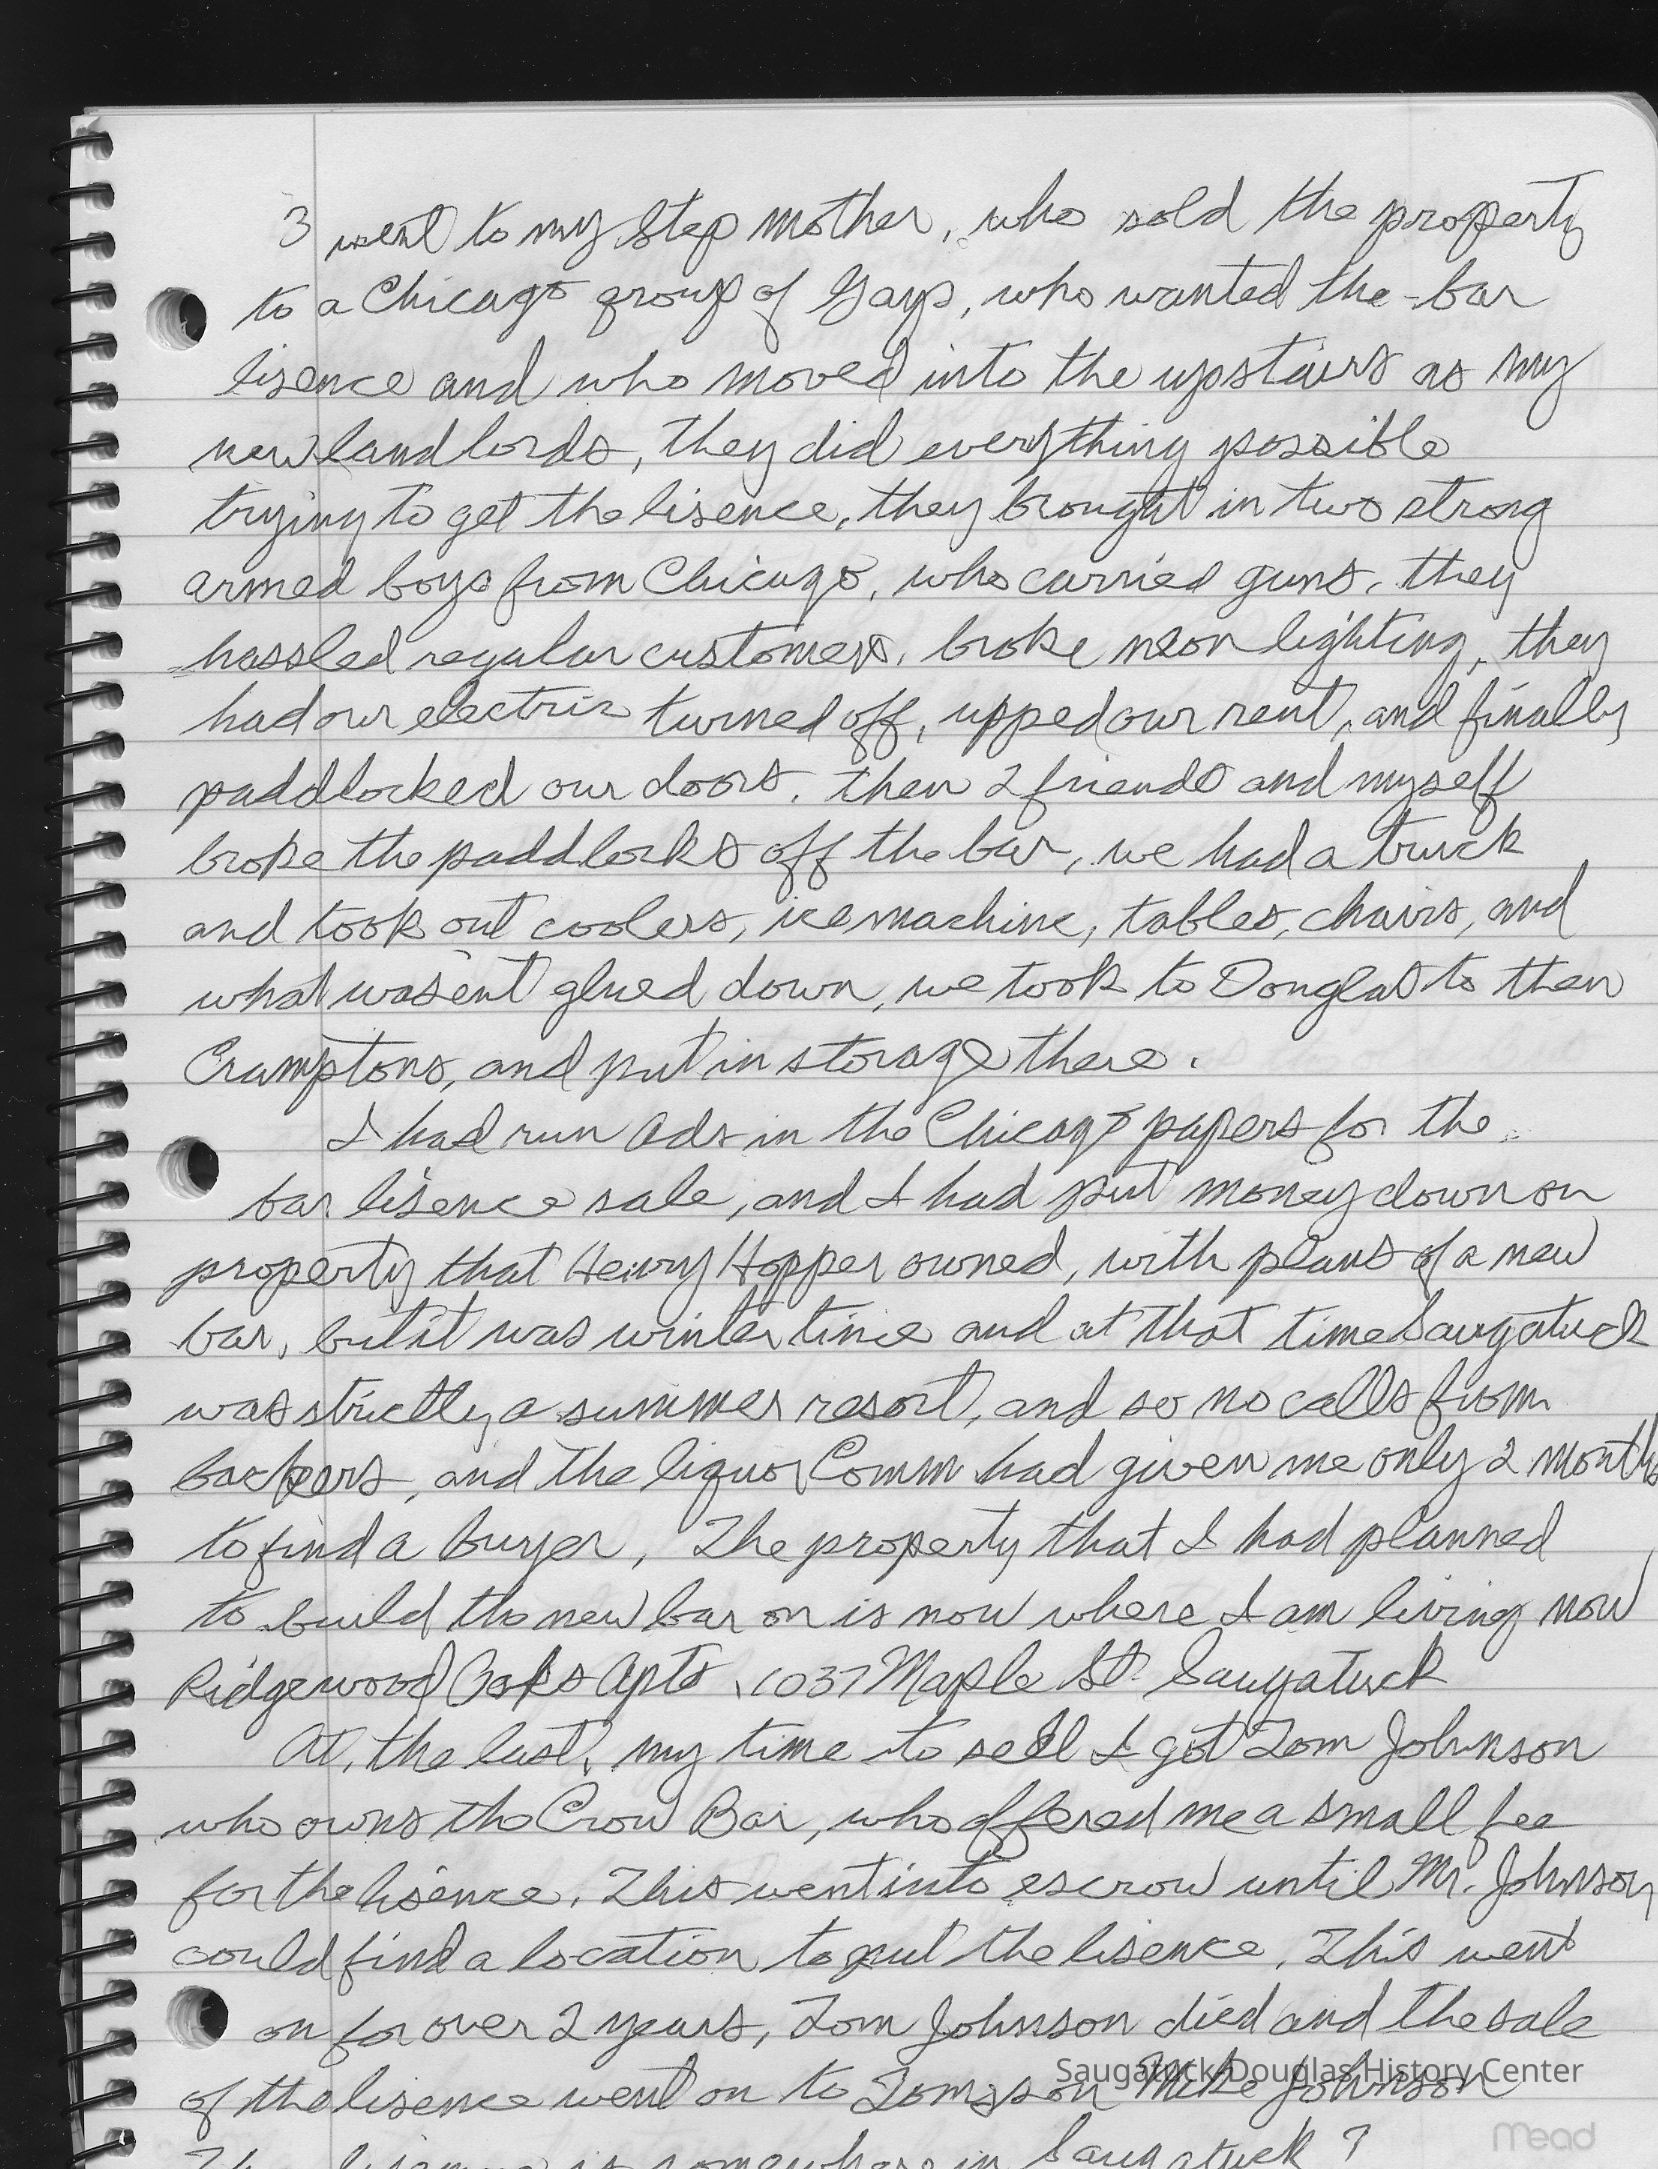 3 went to my Step mother, who sold the property
to a Chicago group of Gays, who wanted the bar
lisence and who moved into the upstairs as my
new landlords, they did everything possible
trying to get the lisence, they brought in two strong
armed boys from Chicago, who carried guns, they
hassled regular customers, broke neon lighting, they
had our electric turned off, upped our rent, and finally
paddlocked our doors. then 2 friends and myself
broke the paddlocks off the bar, we had a truck
and took out coolers, icemachine, tables, chairs, and
what wasent glued down, we took to Douglas to then
Cramptons, and put in storage there.
I had run ads in the Chicago papers for the
bar lisence sale, and I had put money down on
property that Henry Hopper owned, with plans of a new
bar, but it was winter time and at that time Saugatuck
was strictly a summer resort, and so no calls from
backers, and the liquor Comm had given me only 2 months
to find a buyer, The property that I had planned
to build the new bar on is now where I am living now
Ridgewood Oaks Apts, 1037 Maple St. Saugatuck
At, the last, my time to sell I got Tom Johnson
who owns the Crow Bar, who offered me a small fee
for the lisence. This went into escrow until Mr. Johnson
could find a location to put the lisence. This went
on for over 2 years, Tom Johnson died and the sale
of the lisence went on to Toms son Mike Johnson
lisence is somewhere in Saugatuck ?
Saugatuck-Douglas History Center
Mead